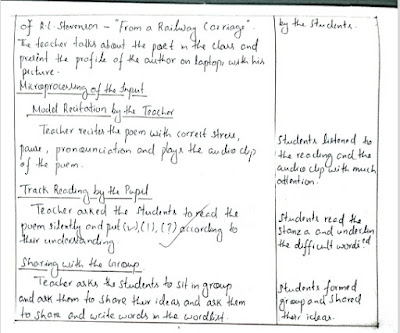 of R.L. Stevenson - "From a Railway Carriage".
The teacher talks about the poet in the class and
present the profile of the author on laptop with his
picture.
Microprocessing of the Input
Model Recitation by the Teacher
Teacher recites the poem with correct stress,
pause, pronounciation and plays the audio clip
of the poem.
Track Reading by the Pupil
Teacher asked the students to read the
poem silently and put (✓), (!), (?) according to
their understanding
Sharing with the Group
Teacher asks the students to sit in group
and ask them to share their ideas and ask them
to share and write words in the wordlist.
by the students.
Students listened to
the reading and the
audio clip with much
attention.
Students read the
stanza and underlin
ed
the difficult words
Students formed
group and shared
their ideas.